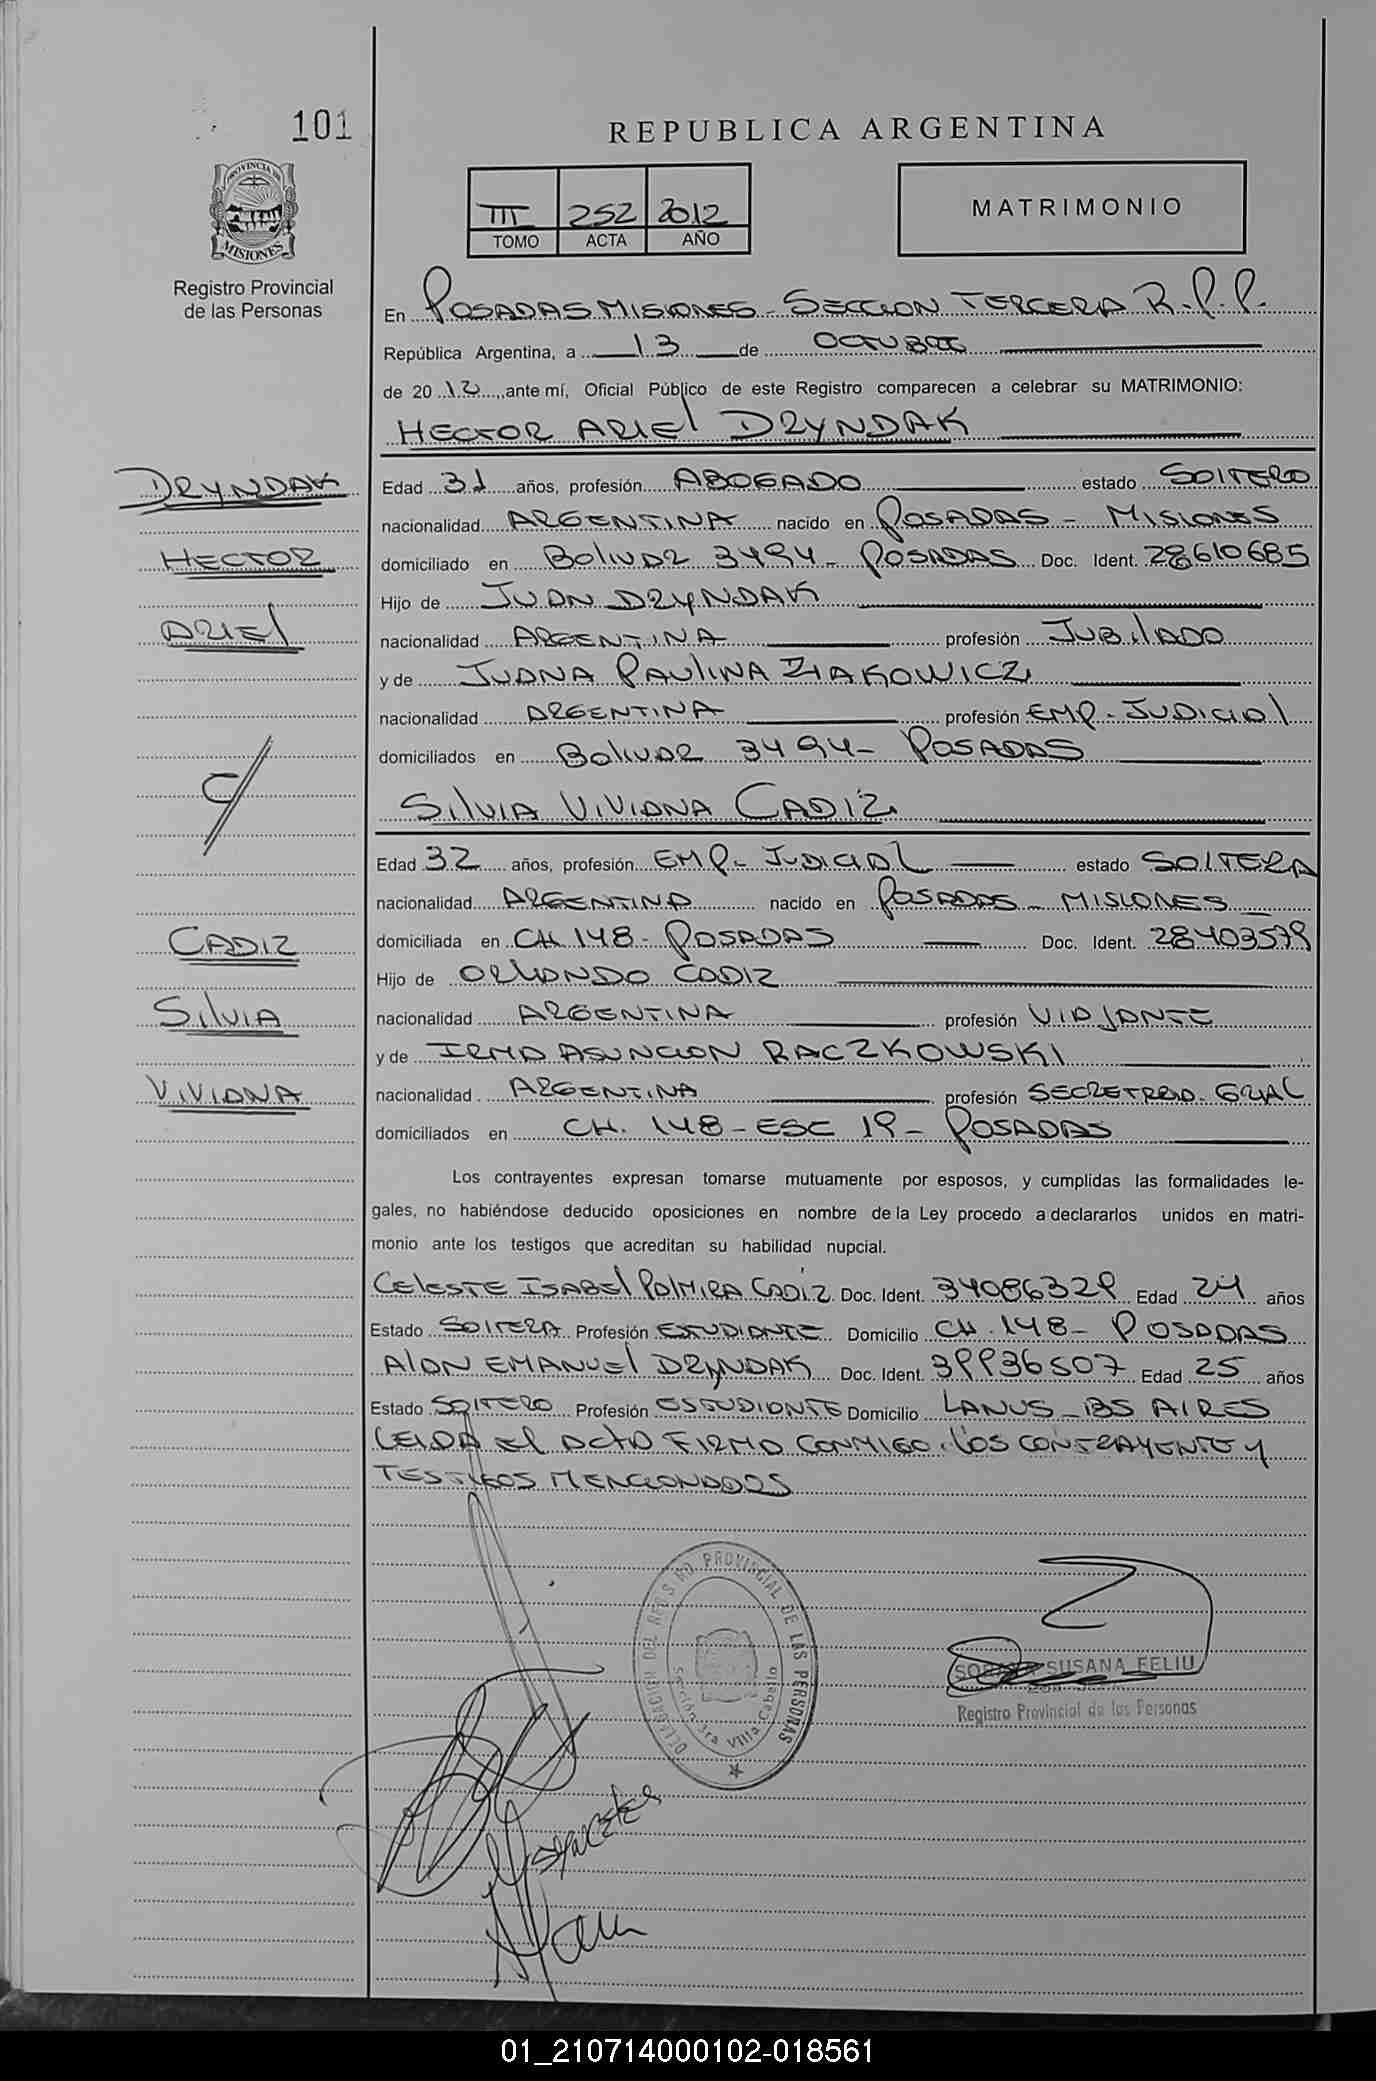 101
REPUBLICA ARGENTINA
PROVINCIA DE
MISIONES
Registro Provincial
de las Personas
III 252 2012
TOMO ACTA AÑO
MATRIMONIO
En POSADAS MISIONES - SECCION TERCERA R.P.P.
República Argentina, a 13 de OCTUBRE
de 2012, ante mí, Oficial Público de este Registro comparecen a celebrar su MATRIMONIO:
HECTOR ARIEL DRYNDAK
DRYNDAK
HECTOR
ARIEL
Edad 31 años, profesión ABOGADO estado SOLTERO
nacionalidad ARGENTINA nacido en POSADAS - MISIONES
domiciliado en BOLIVAR 3494 - POSADAS Doc. Ident. 28610685
Hijo de JUAN DRYNDAK
nacionalidad ARGENTINA profesión JUBILADO
y de JUANA PAULINA ZIAKOWICZ
nacionalidad ARGENTINA profesión EMP. JUDICIAL
domiciliados en BOLIVAR 3494 - POSADAS
C/
SILVIA VIVIANA CADIZ
Edad 32 años, profesión EMP. JUDICIAL estado SOLTERA
nacionalidad ARGENTINA nacido en POSADAS - MISIONES
CADIZ
SILVIA
VIVIANA
domiciliada en CH 148 - POSADAS Doc. Ident. 28403579
Hijo de ORLANDO CADIZ
nacionalidad ARGENTINA profesión VIAJANTE
y de IRMA ASUNCION RACZKOWSKI
nacionalidad ARGENTINA profesión
domiciliados en CH. 148 - ESC 19 - POSADAS
Los contrayentes expresan tomarse mutuamente por esposos, y cumplidas las formalidades le-
gales, no habiéndose deducido oposiciones en nombre de la Ley procedo a declararlos unidos en matri-
monio ante los testigos que acreditan su habilidad nupcial.
CELESTE ISABEL PALMIRA CADIZ Doc. Ident. 34086329 Edad 24 años
Estado SOLTERA Profesión ESTUDIANTE Domicilio CH. 148 - POSADAS
ALAN EMANUEL DRYNDAK Doc. Ident. Edad 25 años
Estado SOLTERO Profesión ESTUDIANTE Domicilio LANUS - BS AIRES
LEIDA EL ACTA FIRMA CONMIGO LOS CONTRAYENTE Y
TESTIGOS MENCIONADOS
DELEGACION DEL REGISTRO PROVINCIAL DE LAS PERSONAS
Sección 3ra Villa Cabello
SUSANA FELIU
Registro Provincial de las Personas
01_210714000102-018561